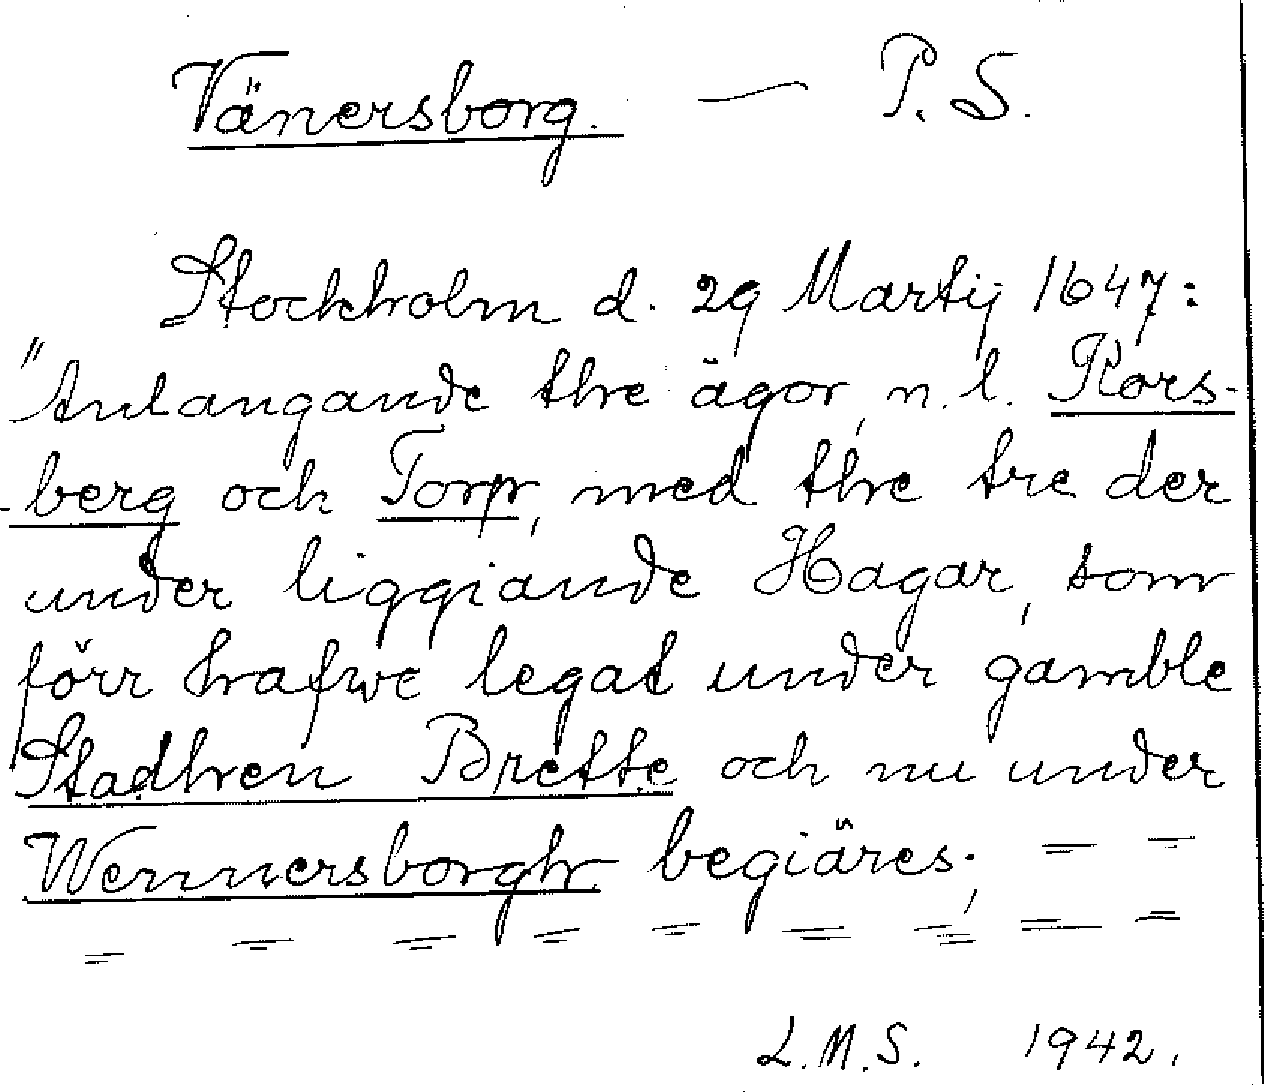 Vänersborg. — P. S.
Stockholm d. 29 Martij 1647:
"Anlangande the ägor, n. l. Kors-
-berg och Torp, med the tre der
under liggiande Hagar, som
förr hafwe legat under gamble
Stadhen Brette och nu under
Wennersborgh begiäres; = =
= = = = = = = = =
L. M. S. 1942.